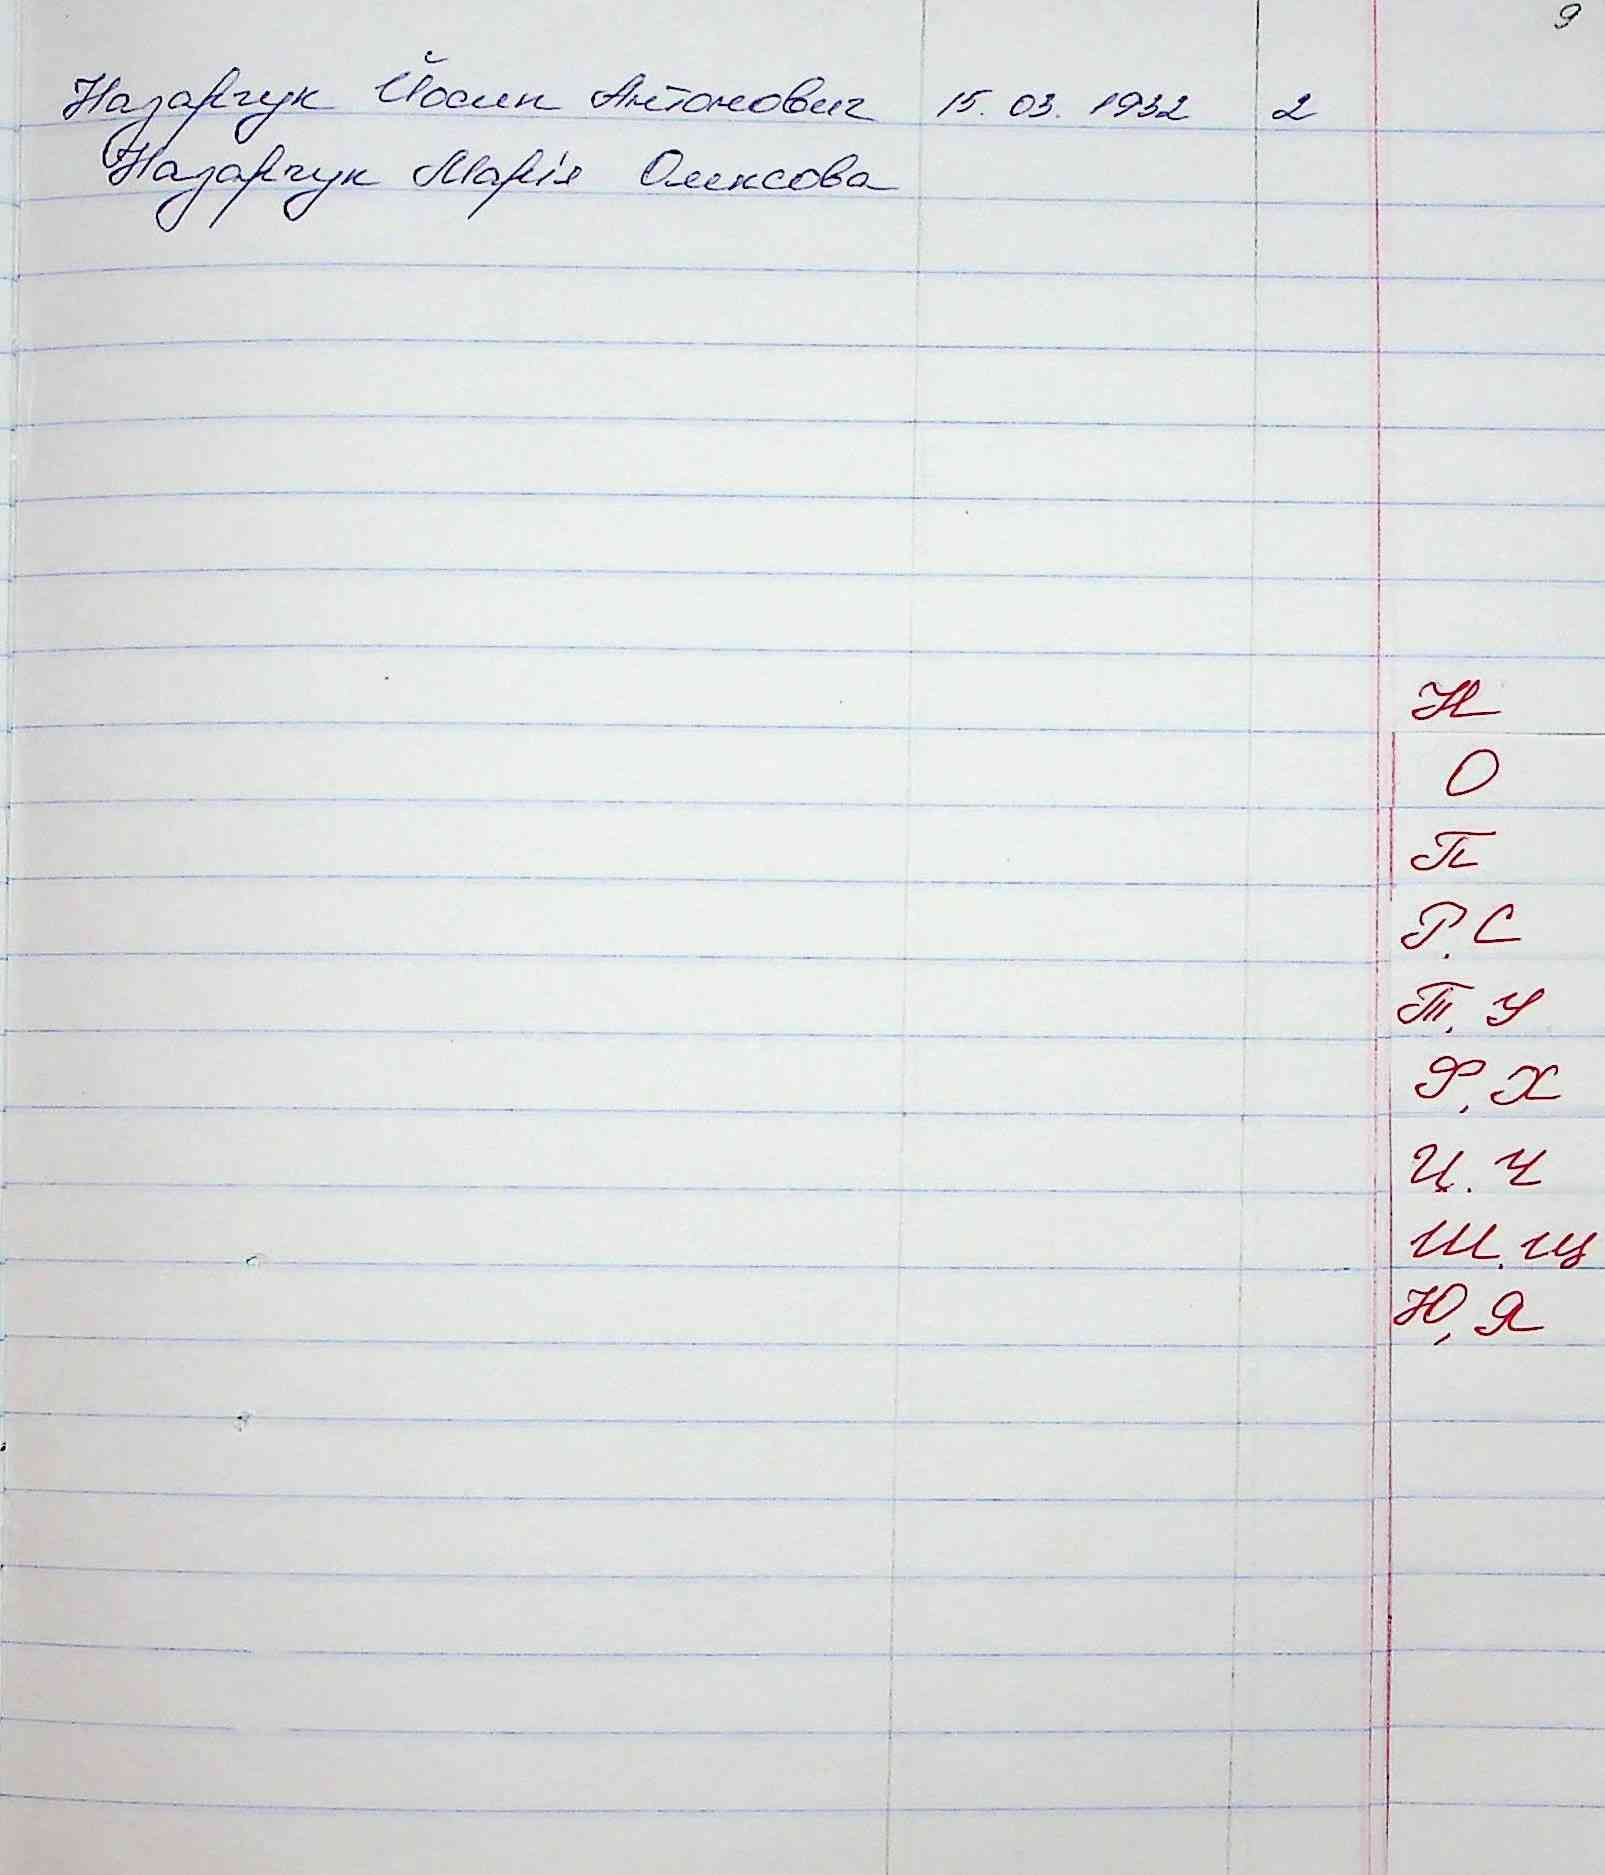 9
Назарчук Йосип Антонович 15.03.1932 2
Назарчук Марія Олексова
Н
О
П
Р, С
Т, У
Ф, Х
Ц, Ч
Ш, Щ
Ю, Я